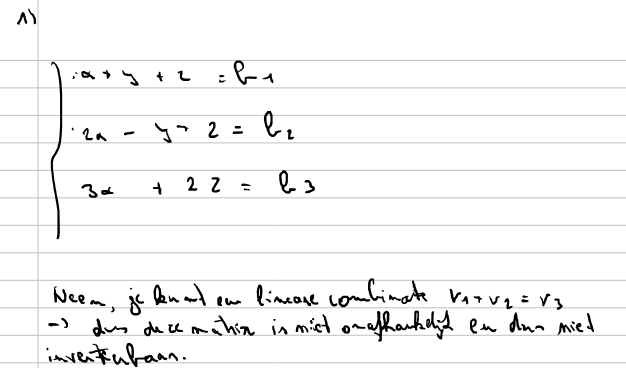 1)
x + y + z = b1
2x - y + z = b2
3x + 2z = b3
Neem, je kunt een lineare combinatie v1 + v2 = v3
-> dus deze matrix is niet onafhankelijk en dus niet
inverteerbaar.